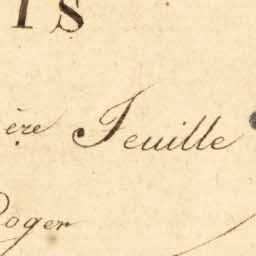 IS
ère Feuille
Roger